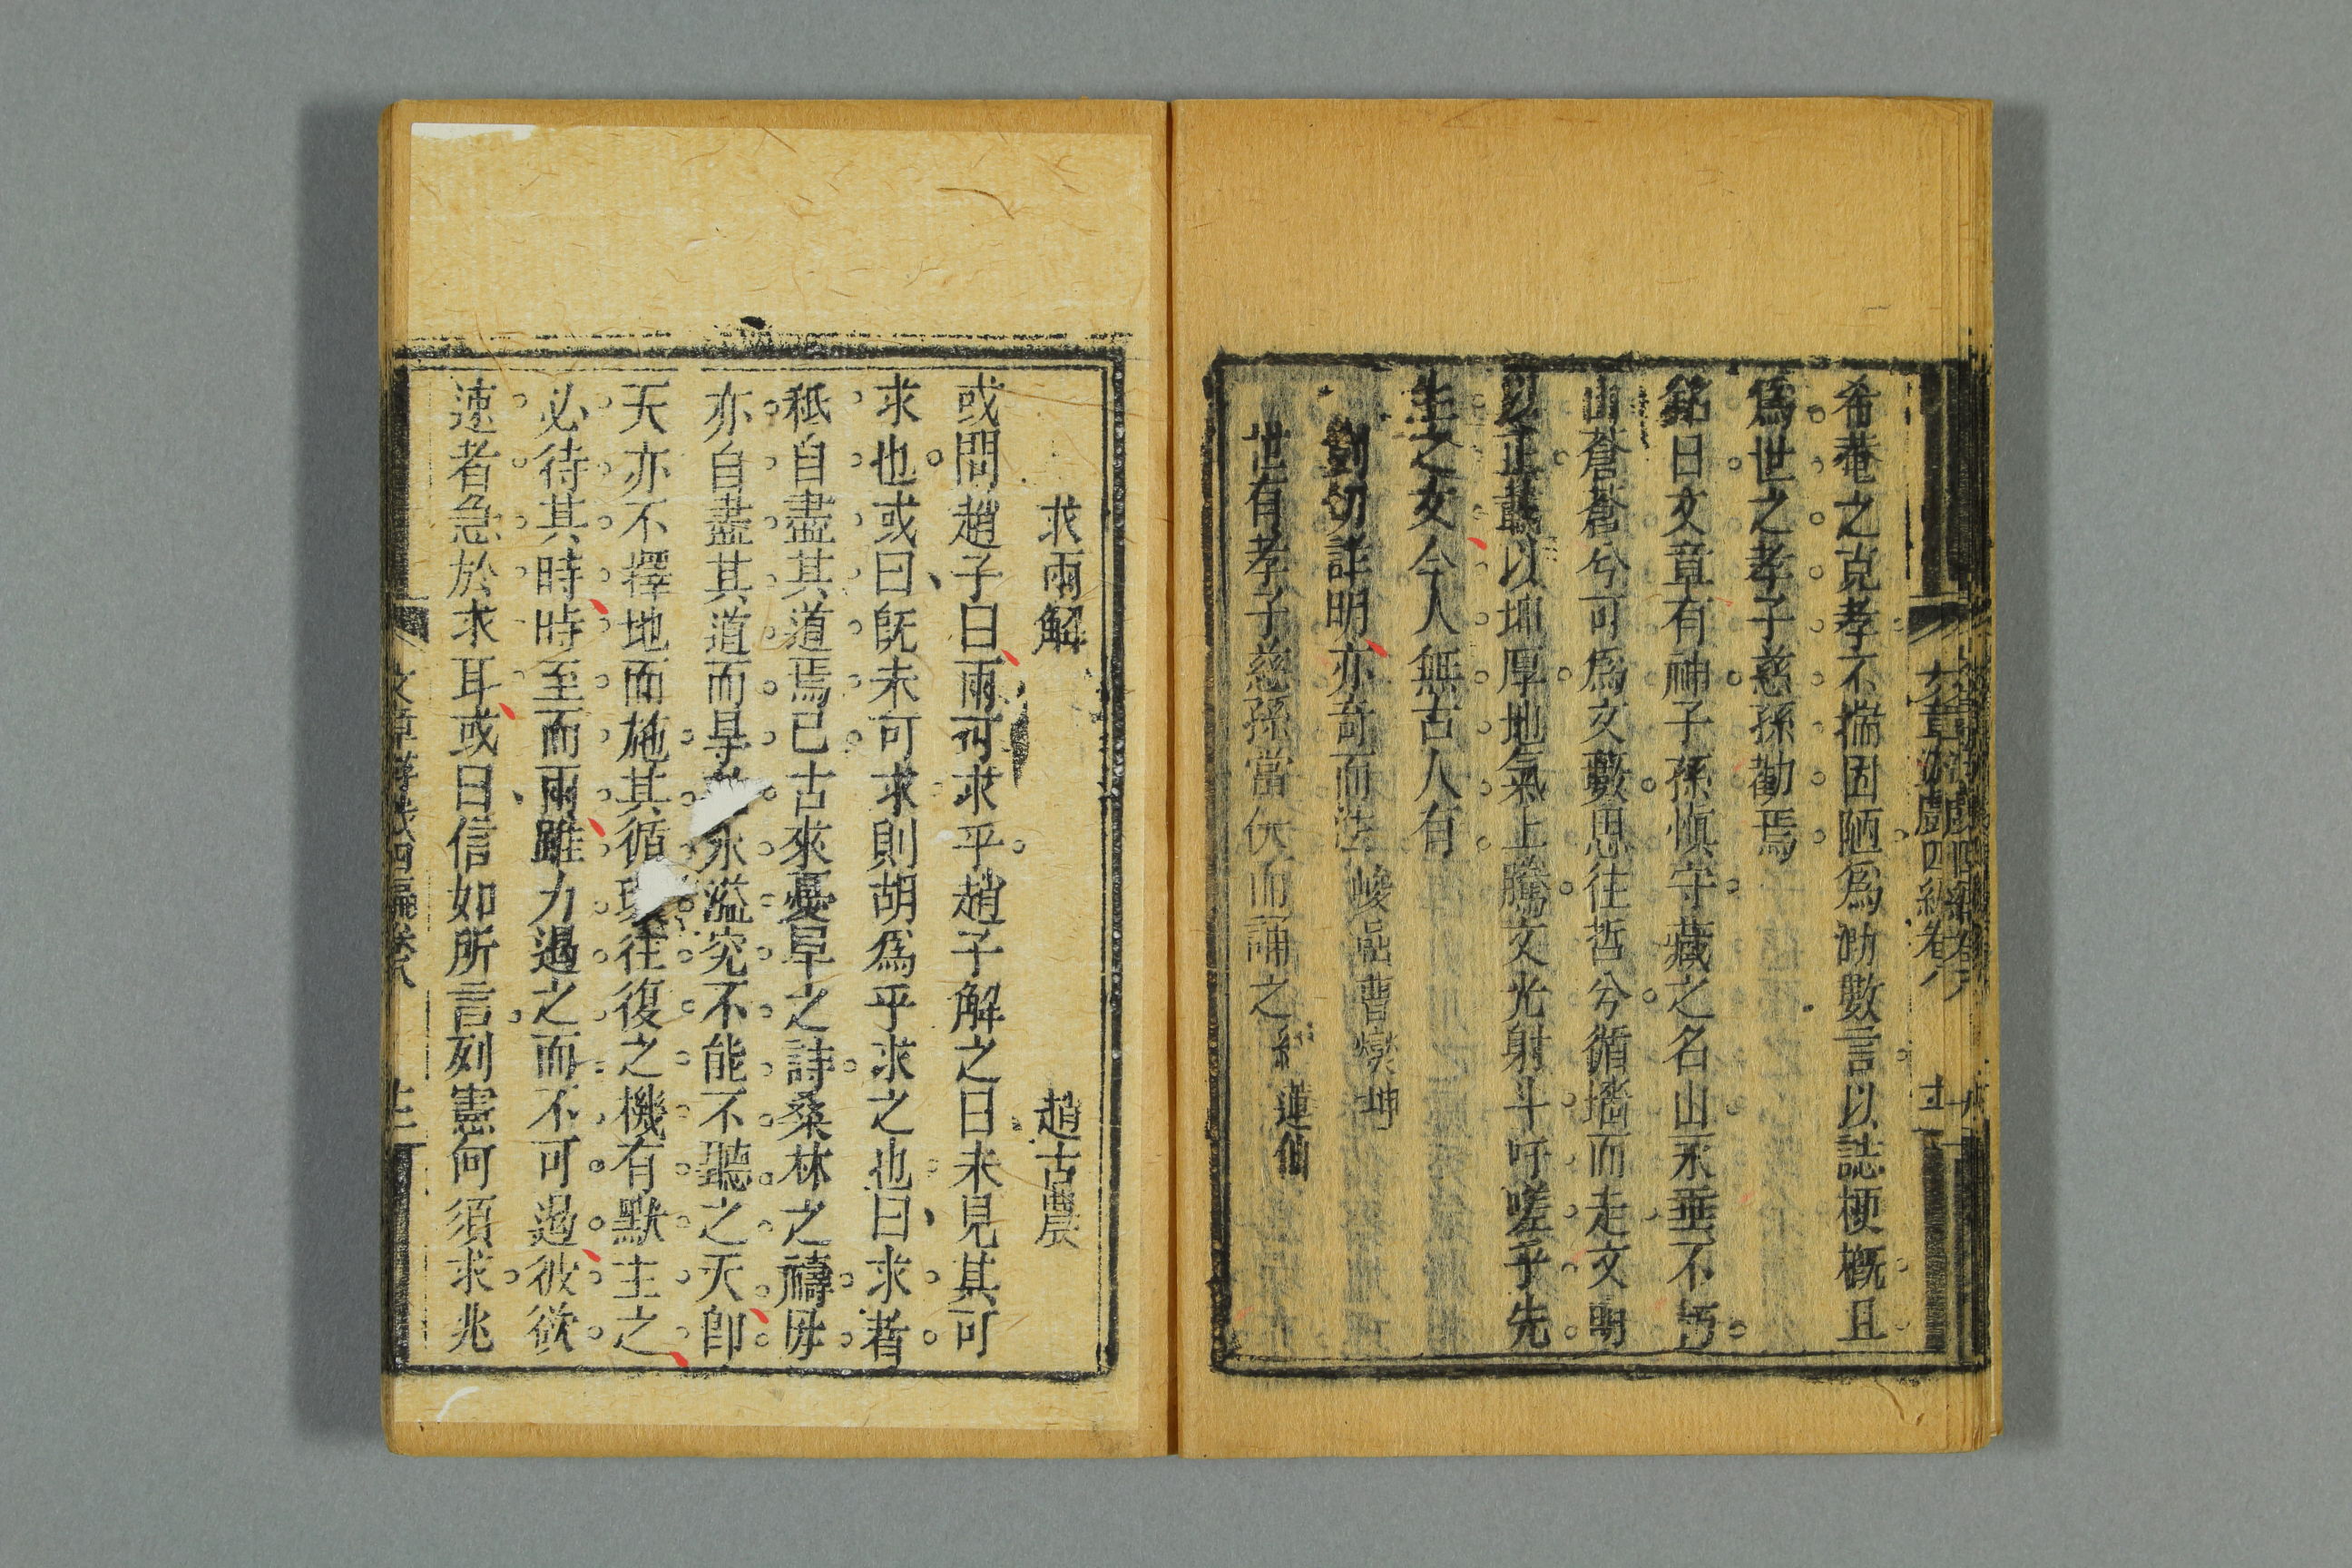 希菴之克孝不揣固陋爲助數言以誌梗概且
爲世之孝子慈孫勸焉
銘曰文章有神子孫慎守藏之名山永垂不朽
山蒼蒼兮可爲文藪思往哲兮循墻而走文明
以正蓺以坤厚地氣上騰文光射斗吁嗟乎先
生之文今人無古人有
剴切詳明亦奇而法 峻嵓曹燮坤
世有孝子慈孫當伏而誦之 紅蓮仙
文章游戲四編卷八
求雨解 趙古農
或問趙子曰雨可求乎趙子解之曰未見其可
求也或曰旣未可求則胡爲乎求之也曰求者
秖自盡其道焉已古來憂旱之詩桑林之禱毋
亦自盡其道而旱 水溢究不能不聽之天卽
天亦不擇地而施其循 往復之機有默主之
必待其時時至而雨雖力遏之而不可遏彼欲
速者急於求耳或曰信如所言列憲何須求兆
文章游戲四編卷八 十三